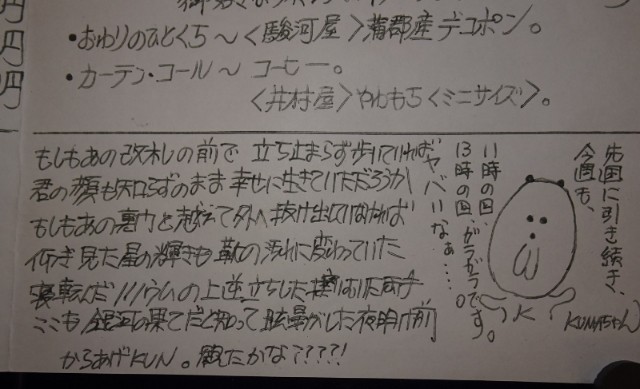 円
円
円
•おわりのひとくち～〈駿河屋〉蒲郡産デコポン。
•カーテン・コール～ コーヒー。
〈井村屋〉やわもち〈ミニサイズ〉。
もしもあの改札の前で 立ち止まらず歩いていれば
君の顔も知らずのまま 幸せに生きていただろうか
もしもあの裏門を越えて外へ抜け出していなければ
仰ぎ見た星の輝きも 靴の汚れに変わっていた
寝転んだリノウムの上 逆立ちした
ここも銀河の果てだと知って 眩暈がした夜明け前
からあげKUN。観たかな????!
先週に引き続き、
今週も、
11時の回、
13時の回、ガラガラです。
ヤバいなぁ……。
K
KUMAちゃん